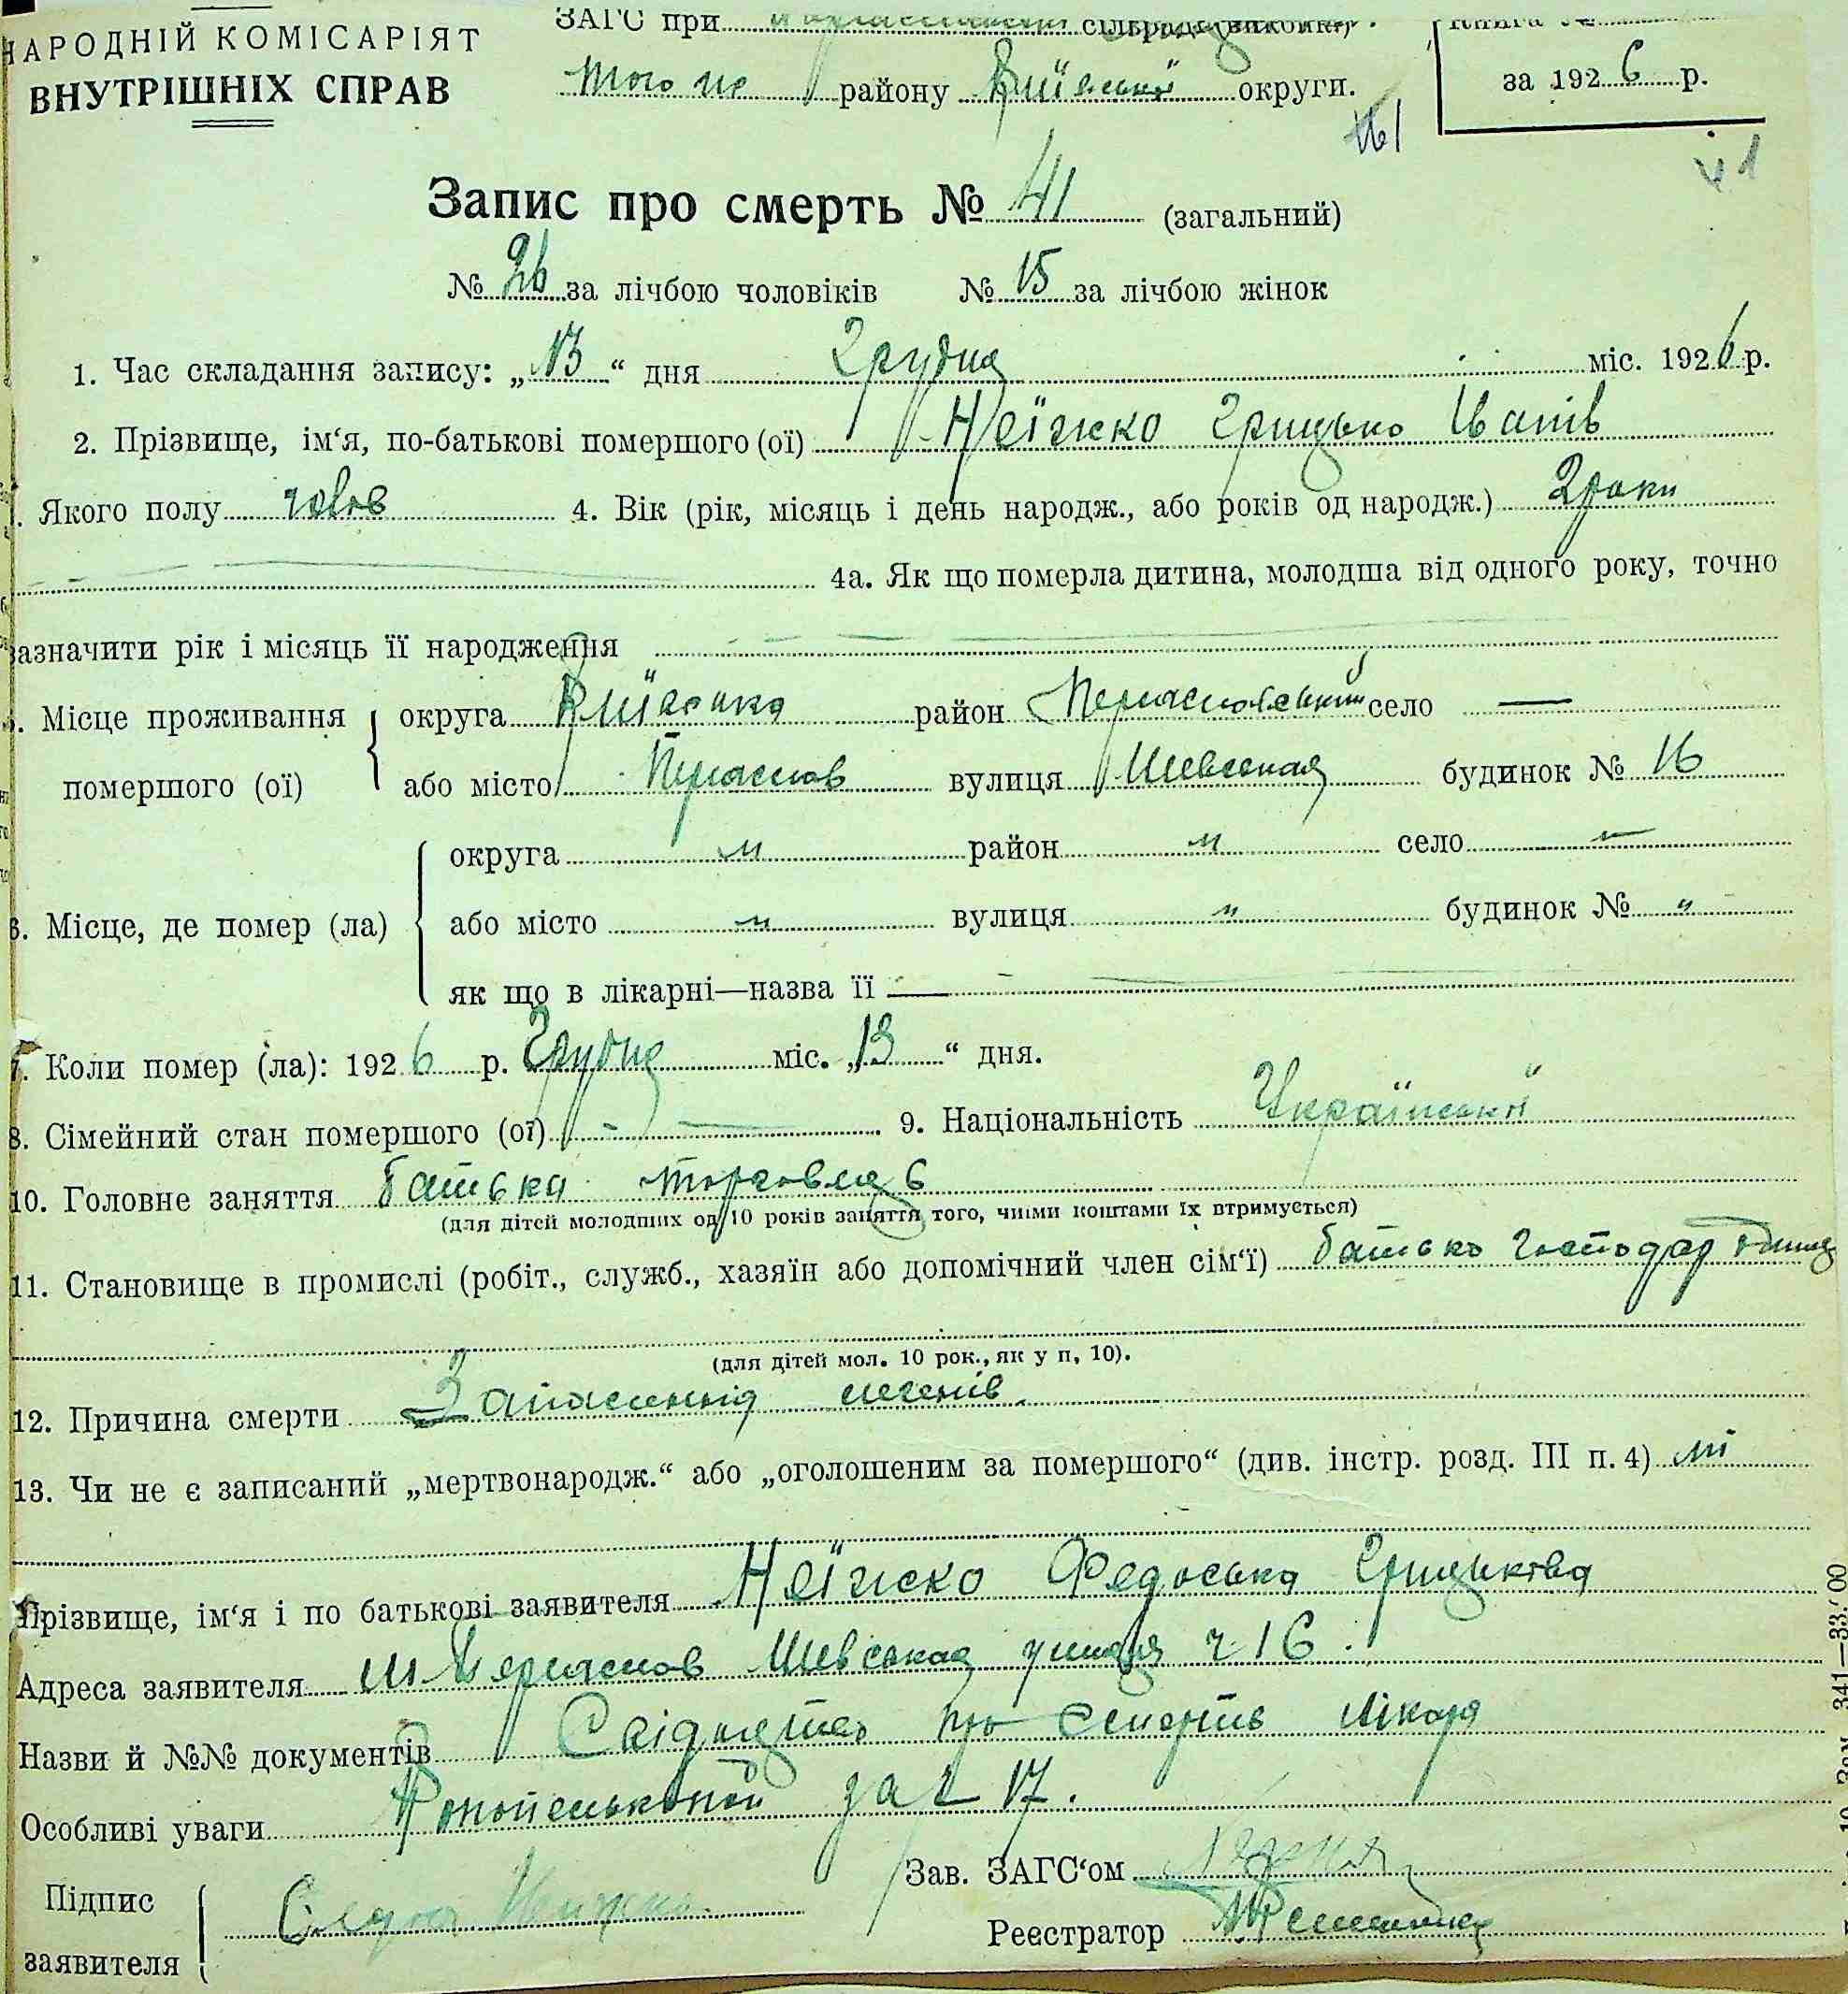 НАРОДНІЙ КОМІСАРІЯТ
ВНУТРІШНІХ СПРАВ
ЗАГС при сільраді (виконк.)
того ж району Київської округи.
Книга №
за 1926 р.
41
Запис про смерть № 41 (загальний)
№ 26 за лічбою чоловіків № 15 за лічбою жінок
1. Час складання запису: „13“ дня Грудня міс. 1926 р.
2. Прізвище, ім‘я, по-батькові помершого (ої) Неїжко Грицько Іванів
. Якого полу чолов 4. Вік (рік, місяць і день народж., або років од народж.) 2 роки
4а. Як що померла дитина, молодша від одного року, точно
зазначити рік і місяць її народження
. Місце проживання помершого (ої) округа Київська район Переяславський село —
або місто Переяслав вулиця будинок № 16
6. Місце, де помер (ла) округа " район " село "
або місто " вулиця " будинок № "
як що в лікарні—назва її —
7. Коли помер (ла): 1926 р. Грудня міс. „13“ дня.
8. Сімейний стан помершого (ої) - — 9. Національність Української
10. Головне заняття батька торговля
(для дітей молодших од 10 років заняття того, чиїми коштами їх втримується)
11. Становище в промислі (робіт., служб., хазяїн або допомічний член сім‘ї) батько господар
(для дітей мол. 10 рок., як у п, 10).
12. Причина смерти Запалення легенів.
13. Чи не є записаний „мертвонародж.“ або „оголошеним за помершого“ (див. інстр. розд. III п. 4) ні
Прізвище, ім‘я і по батькові заявителя Неїжко Федоська Грицькова
Адреса заявителя м Переяслав вулиця ч 16.
Назви й №№ документів про смерть лікаря
Особливі уваги за ч 17.
Підпис
заявителя
Зав. ЗАГС‘ом
Реєстратор